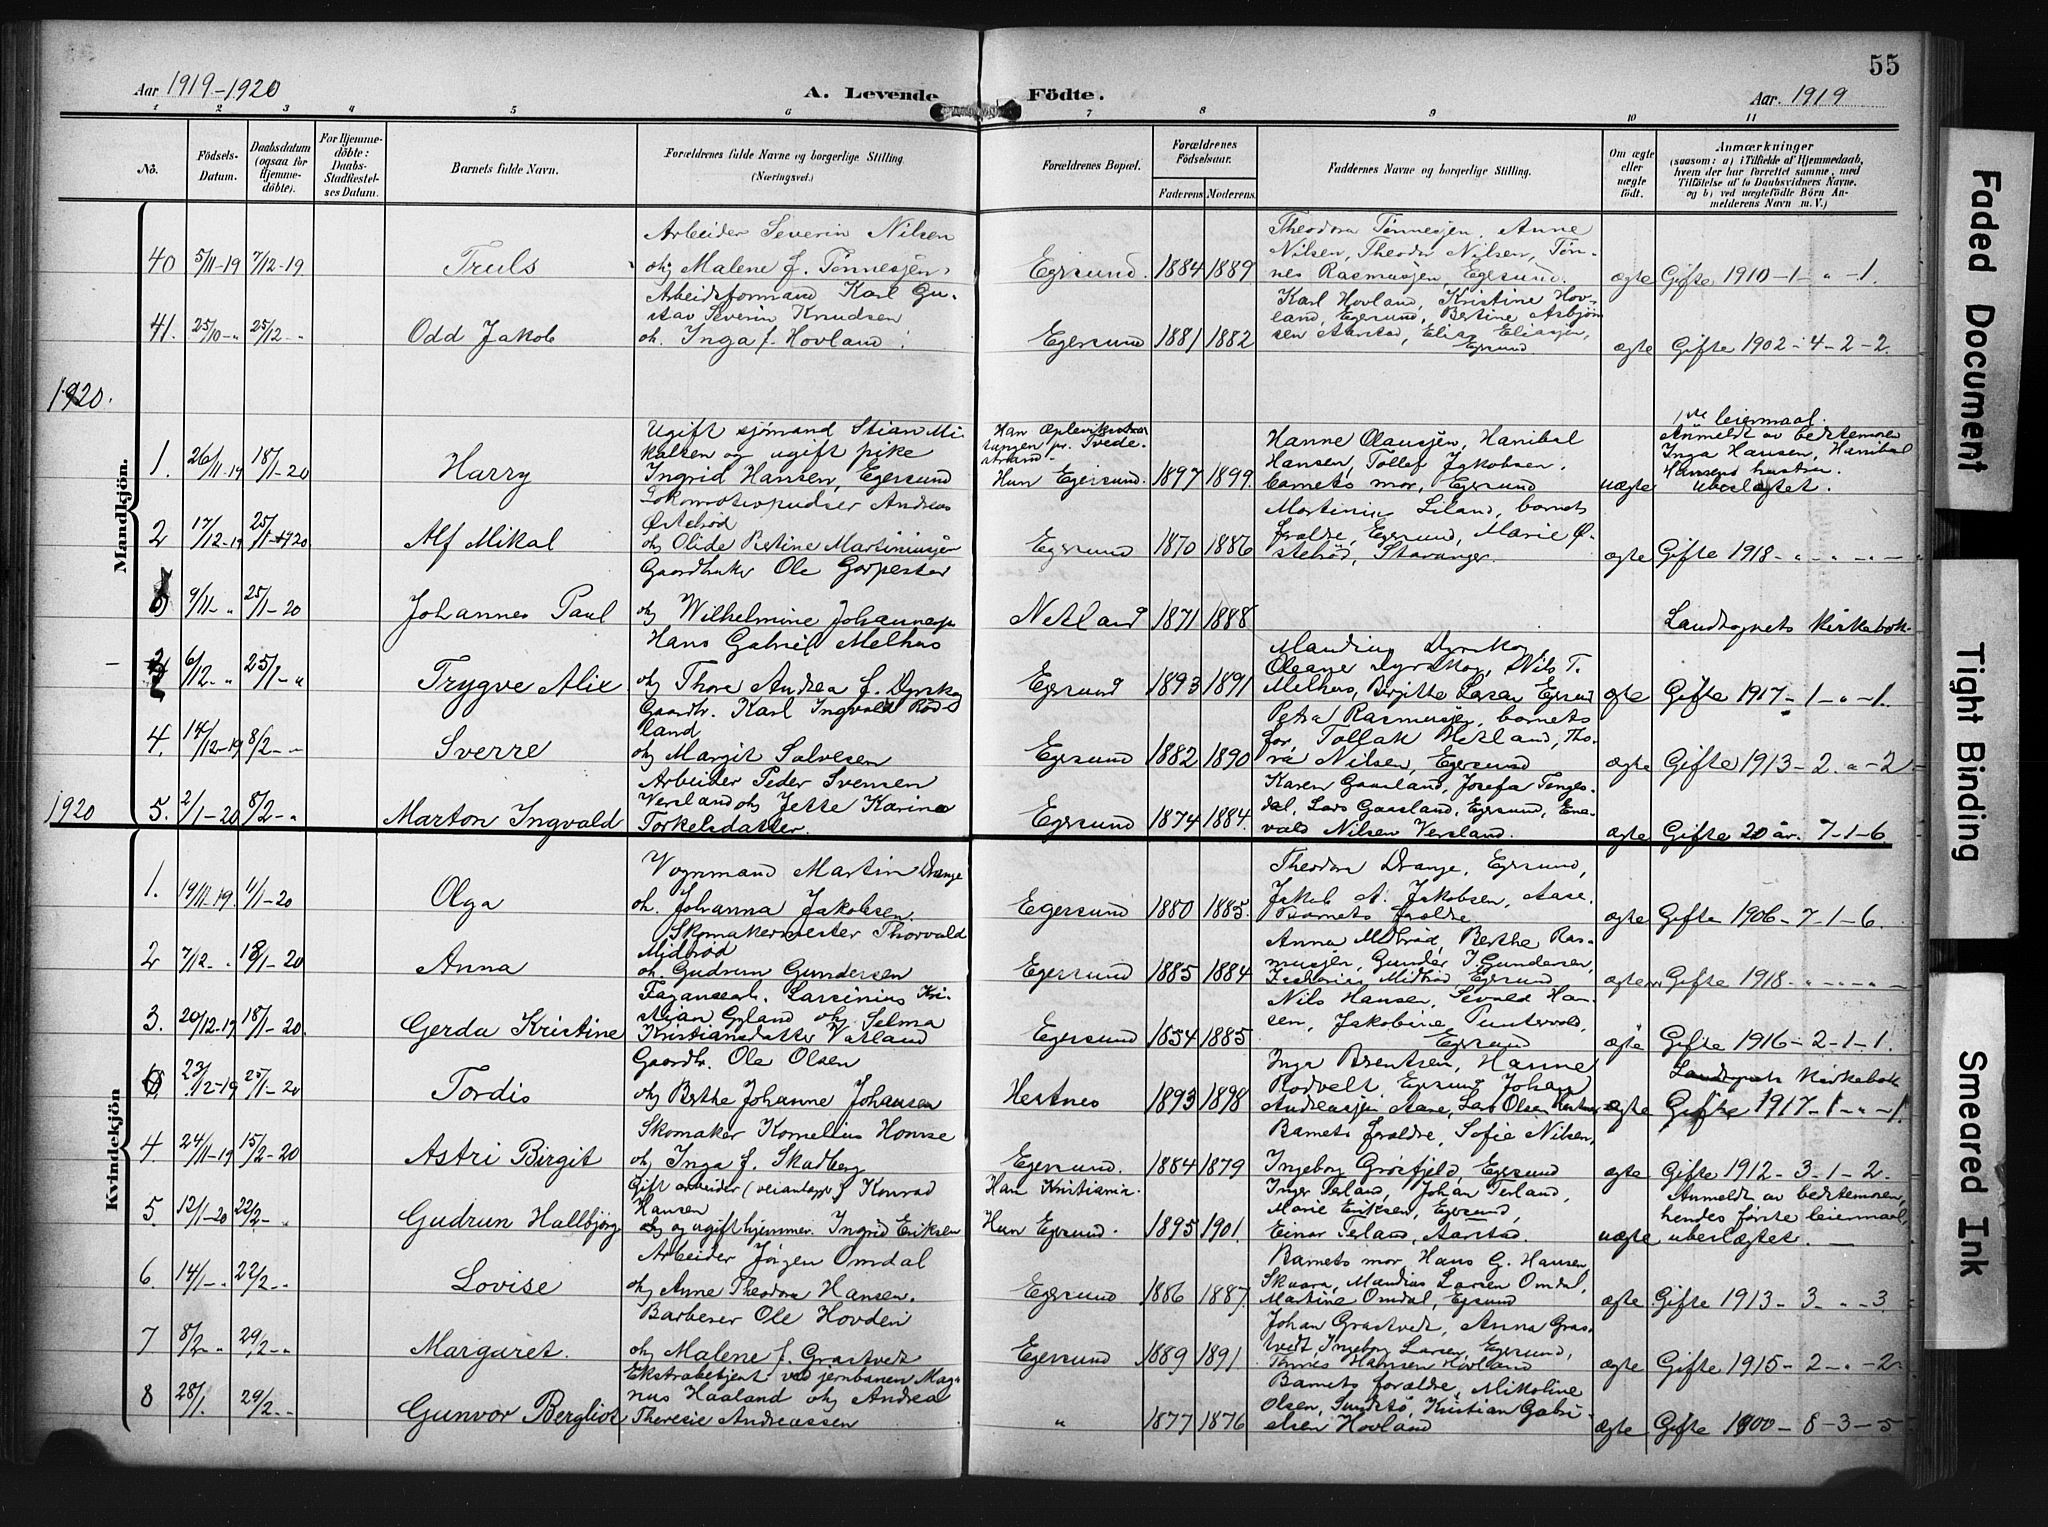 55
Aar 1919-1920
A. Levende Födte.
Aar. 1919
1 2 3 4 5 6 7 8 9 10 11
No.
Födsels-Datum.
Daabsdatum (ogsaa for Hjemmedöbte).
For Hjemmedöbte: Daabs-Stadfæstelses Datum.
Barnets fulde Navn.
Forældrenes fulde Navne og borgerlige Stilling. (Næringsvei.)
Forældrenes Bopæl.
Forældrenes Födselsaar.
Faderens Moderens.
Faddernes Navne og borgerlige Stilling.
Om ægte eller uægte födt.
Anmærkninger
(saasom: a) i Tilfælde af Hjemmedaab, hvem der har forrettet samme, med Tilföielse af to Daabsvidners Navne, og b) ved uægtefödte Börn Anmelderens Navn m. V.)
Mandkjön.
40 5/11-19 7/12-19 Truls
Arbeider Severin Nilsen
og Malene f. Tönnesjen
Egersund. 1884 1889
Theodora Tönnesjen, Anne
Nilsen, Theodor Nilsen, Tön-
nes Rasmusjen Egersund.
ægte Gifte 1910-1-"-1.
41. 25/10-" 25/12-" Odd Jakob
Arbeidsformand Karl Gu-
stav Severin Knudsen
og Inga f. Hovland.
Egersund 1881 1882
Karl Hovland, Kristine Hov-
land, Egersund, Bertine Asbjörn
sen Aarstad, Elias Eliasjen,
Egersund.
ægte Gifte 1902-4-2-2.
1920.
1. 26/11-19 18/1-20 Harry
Ugift sjömand Stian Mi-
kalsen og ugift pike
Ingrid Hansen, Egersund
Hun Egersund. 1897 1899.
Hanne Olausjen, Hanibal
Hansen, Tollef Jakobsen.
barnets mor, Egersund
uægte
1ste leiermaal.
Anmeldt av bedstemoren
Inga Hansen, Hanibal
Hansens hustru.
uberigtet.
2 17/12-19 25/1-1920 Alf Mikal
Lokomotivpudser Andreas
Östebröd
og Olide Bertine Martiniusjen
Egersund 1870 1886
Martinius Liland, barnets
foraldre, Egersund, Marie Ö-
stebröd, Stavanger.
ægte Gifte 1918-"-"-"-
9/11-" 25/1-20 Johannes Paul
Gaardbruker Ole Gorpestad
og Wilhelmine Johannesjen
Netland 1871 1888
Landsognets Kirkebok.
6/12-" 25/1-" Trygve Alix
Hans Gabriel Melhus
og Thora Andrea f. Dyrskog
Egersund 1893 1891
Mandius Dyrskog
Oleane Dyrskog, Nils T.
Melhus, Birgitte Larsen Egersund
ægte Gifte 1917-1-"-1.
4. 14/12-19 8/2-" Sverre
Gaardbr. Karl Ingvald Rod-
land
og Margit Salvesen
Egersund 1882 1890
Petra Rasmusjen, barnets
far, Tollak Hetland, Tho-
ra Nilsen, Egersund
ægte Gifte 1913-2-"-2
1920 5. 2/1-20 8/2-" Marton Ingvald
Arbeider Peder Svensen
Versland og Jette Karine
Torkelsdatter.
Egersund 1874 1884.
Karen Gaasland, Josefa Tenges-
dal, Lars Gaasland, Egersund, Ene-
vald Nilsen Versland.
ægte Gifte 20 år. 7-1-6.
Kvindekjön
1. 19/11-19 11/1-20 Olga
Vognmand Martin Drange
og Johanna Jakobsen.
Egersund 1880 1885.
Theodora Drange, Egersund,
Jakob A. Jakobsen, Aase.
Barnets foraldre.
ægte Gifte 1906-7-1-6.
2 7/12-" 18/1-20 Anna
Skomakermester Thorvald
Midbröd
og Gudrun Gundersen
Egersund 1885 1884
Anna Midbröd, Berthe Ras-
musjen, Gunder I. Gundersen,
Midbröd Egersund
ægte Gifte 1918-"-"-"-
3. 20/12-19 18/1-20. Gerda Kristine
Larsinius Kri-
stjan Gyland og Selma
Kristiansdatter Vatland
Egersund 1854 1885
Nils Hansen, Sevald Han-
sen, Jakobine Puntervold,
Egersund
ægte Gifte 1916-2-1-1.
23/12-19 25/1-20 Tordis
Gaardbr. Ole Olsen
og Berthe Johanne Johansen
Hestnes 1893 1898
Inga Berentsen, Hanne
Rodvelt, Egersund, Johan
Andreassjen Aase, Lars Olsen Hestnes
ægte Landsognets Kirkebok
Gifte 1917-1-"-1.
4 24/11-19 15/2-20 Astri Birgit
Skomaker Kornelius Homse
og Inga f. Skadberg
Egersund. 1884 1879
Barnets foraldre, Sofie Nilsen,
Ingeborg Grösfjeld, Egersund
ægte Gifte 1912-3-1-2.
5. 12/1-20 22/2-" Gudrun Hallbjörg
Gift arbeider (veianlægg) Konrad
Hansen
og ugift hjemmev. Ingrid Eriksen
Han Kristiania.
Hun Egersund. 1895 1901.
Inger Terland, Johan Terland,
Marie Eriksen, Egersund,
Einar Terland, Aarstad.
uægte
Anmeldt av bedstemoren,
hendes förste leiermaal,
uberigtet.
6. 14/1-" 22/2-" Lovise
Arbeider Jörgen Omdal
og Anne Theodora Hansen.
Egersund 1886 1887.
Barnets mor, Hans G. Hansen,
Skaara, Mandius Larsen Omdal,
Martine Omdal, Egersund
ægte Gifte 1913-3-"-3
7 8/2-" 29/2-" Margaret.
Barberer Ole Hovden
og Malene f. Grastvedt
Egersund 1889 1891
Johan Grastvedt, Anna Gras-
tvedt, Ingeborg Larsen, Egersund,
Tönnes Hansen Hovland
ægte Gifte 1915-2-"-2.
8 28/1. 29/2-" Gunvor Bergliot
Ekstrabetjent ved jernbanen Mag-
nus Haaland og Andrea
Theresie Andreassen
" 1877 1876
Barnets foraldre, Mikoline
Olsen, Sundstö, Kristian Gabri-
elsen Hovland
ægte Gifte 1900-8-3-5
Faded Document
Tight Binding
Smeared Ink